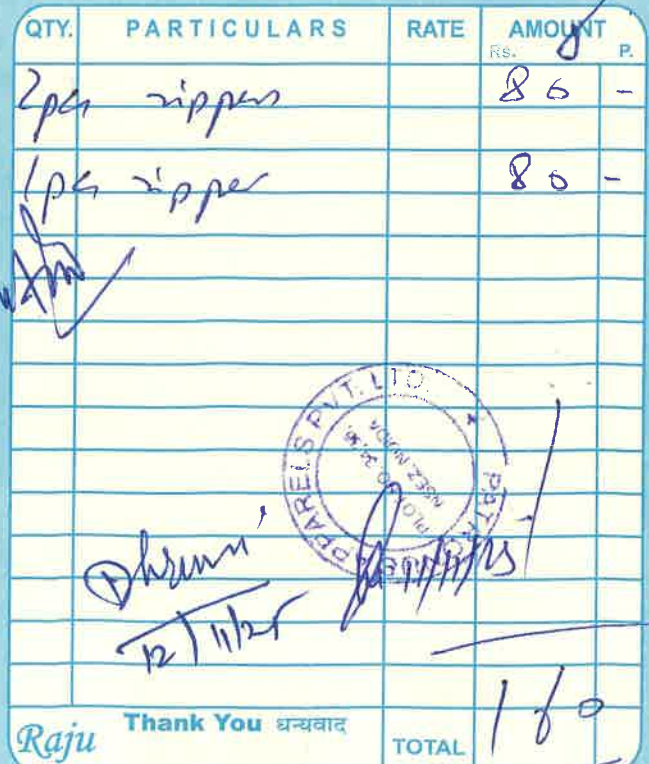 QTY. PARTICULARS RATE AMOUNT
Rs. P.
2pcs zippers 80 -
1pc zipper 80 -
APPARELS PVT. LTD.
PLOT NO. 34,36,
NSEZ NOIDA
11/11/25
12/11/25
160
Thank You धन्यवाद
Raju TOTAL